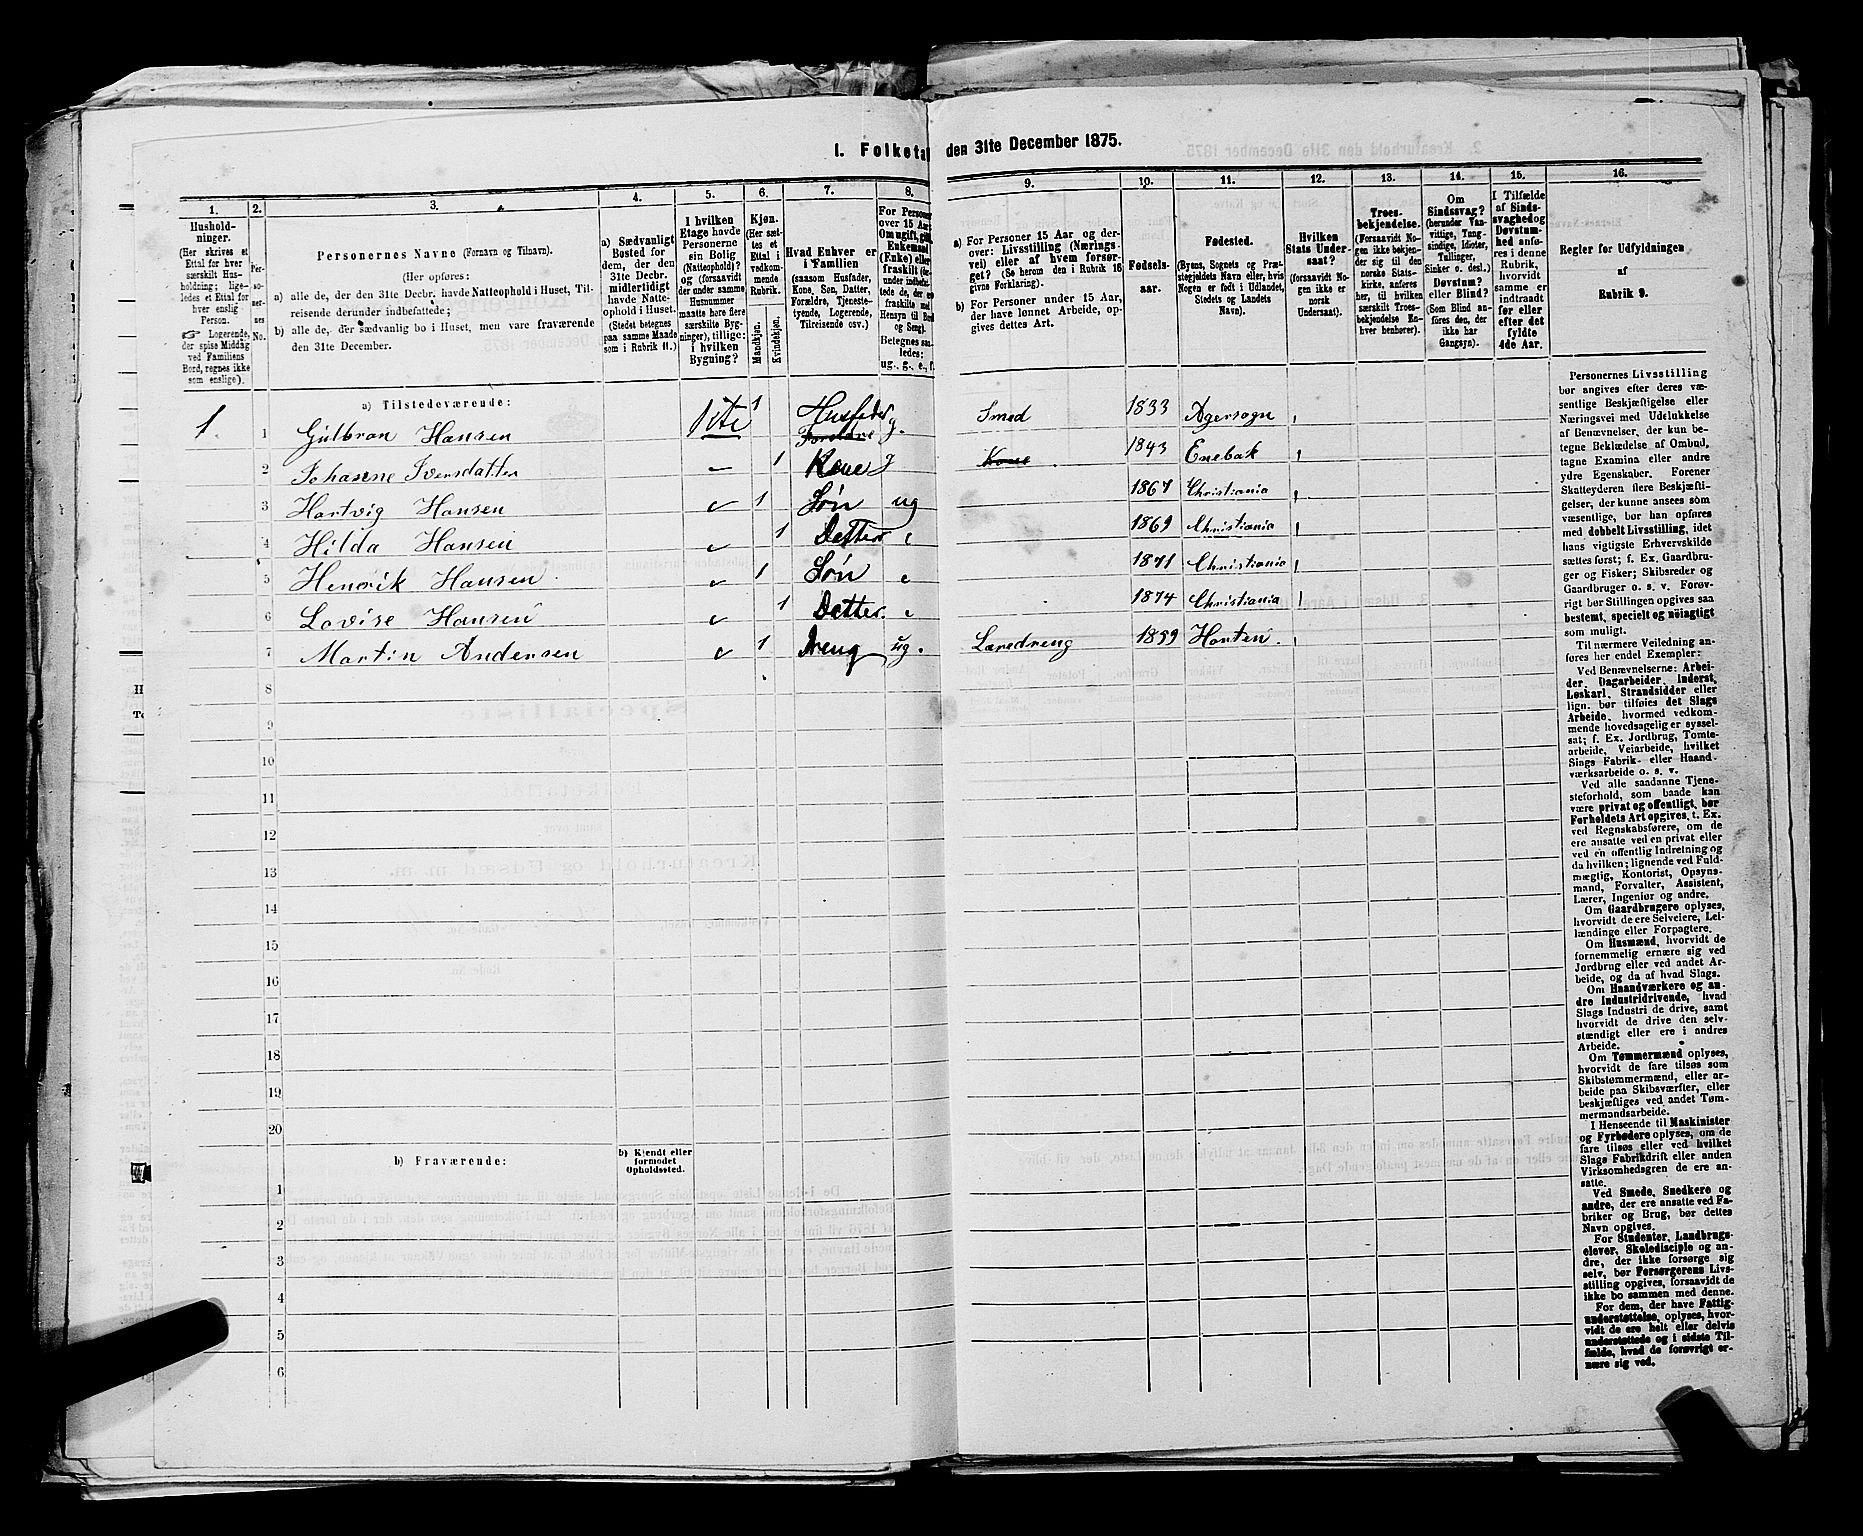 I. Folketæ den 31te December 1875.
1. 2. 3. 4. 5. 6. 7. 8. 9. 10. 11. 12. 13. 14. 15. 16.
Hushold-
ninger.
(Her skrives et
Ettal for hver
særskilt Hus-
holdning; lige-
ledes et Ettal for
hver enslig
Person.
Logerende,
der spise Middag
ved Familiens
Bord, regnes ikke
som enslige).
Per-
so-
ner-
nes
No.
Personernes Navne (Fornavn og Tilnavn).
(Her opføres:
a) alle de, der den 31te Decbr. havde Natteophold i Huset, Til-
reisende derunder indbefattede;
b) alle de, der sædvanlig bo i Huset, men vare fraværende
den 31te December.
a) Sædvanligt
Bosted for
dem, der den
31te Decbr.
midlertidigt
havde Natte-
ophold i Huset.
(Stedet betegnes
paa samme Maade
som i Rubrik 11.)
I hvilken
Etage havde
Personerne
sin Bolig
(Natteophold)?
og (forsaavidt
der under samme
Husnummer
maatte høre flere
særskilte Byg-
ninger), tillige:
i hvilken
Bygning?
Kjøn.
(Her sæt-
tes et
Ettal i
vedkom-
mende
Rubrik.
Mandkjøn.
Kvindekjøn.
Hvad Enhver er
i Familien
(saasom Husfader,
Kone, Søn, Datter,
Forældre, Tjeneste-
tyende, Logerende,
Tilreisende osv.)
For Person
over 15 Aar
Om ugift, gif
Enkemand
(Enke) eller
fraskilt (de
under indbefat
tede de, der e
fraskilte
Hensyn til Bor
og Seng).
Betegnes saa-
ledes:
ug., g., e., f.
a) For Personer 15 Aar og der-
over: Livsstilling (Nærings-
vei) eller af hvem forsør-
get? (Se herom den i Rubrik 16
givne Forklaring).
b) For Personer under 15 Aar,
der have lønnet Arbeide, op-
gives dettes Art.
Fødsels-
aar.
Fødested.
(Byens, Sognets og Præ-
stegjeldets Navn eller, hvis
Nogen er født i Udlandet,
Stedets og Landets
Navn).
Hvilken
Stats Under-
saat?
(forsaavidt No-
gen ikke er
norsk
Undersaat).
Troes-
bekjendelse.
(Forsaavidt No-
gen ikke bekjen-
der sig til den
norske Stats-
kirke, anføres
her, til hvilken
særskilt Troes-
bekjendelse En-
hver henhører).
Om
Sindssvag?
(herunder Van-
vittige, Tung-
sindige, Idioter,
Tullinger,
Sinker o. desl.)
Døvstum?
eller Blind?
(Som Blind an-
føres den, der
ikke har
Gangsyn).
I Tilfælde
af Sinds-
svaghed og
Døvstum-
hed anfø-
res i denne
Rubrik,
hvorvidt
samme er
indtraadt
før eller
efter det
fyldte
4de Aar.
Regler for Udfyldningen
af
Rubrik 9.
a) Tilstedeværende:
1. 1 Gulbran Hansen 1ste 1 Husfader Foreldre g. Smed 1833 Agersogn
2 Johanne Iversdatter 1 Kone g Kone 1843 Enebak
3 Hartvig Hansen 1 Søn ug 1867 Christiania
4 Hilda Hansen 1 Detter 1869 Christiania
5 Henrik Hansen 1 Søn 1871 Christiania
6 Lovise Hansen 1 Detter 1874 Christiania
7 Martin Andersen 1 Dreng ug. Læredreng 1859 Horten
8
9
10
11
12
13
14
15
16
17
18
19
20
b) Fraværende:
b) Kjendt eller
formodet
Opholdssted.
1
2
3
4
5
6
Personernes Livsstilling
bør angives efter deres væ-
sentlige Beskjæftigelse eller
Næringsvei med Udelukkelse
af Benævnelser, der kun be-
tegne Beklædelse af Ombud,
tagne Examina eller andre
ydre Egenskaber. Forener
Skatteyderen flere Beskjæfti-
gelser, der kunne ansees som
væsentlige, bør han opføres
med dobbelt Livsstilling, idet
hans vigtigste Erhvervskilde
sættes først; f. Ex. Gaardbru-
ger og Fisker; Skibsreder og
Gaardbruger o. s. v. Forøv-
rigt bør Stillingen opgives saa
bestemt, specielt og nøiagtigt
som muligt.
Til nærmere Veiledning an-
føres her endel Exempler:
Ved Benævnelserne: Arbei-
der, Dagarbeider, Inderst,
Løskarl, Strandsidder eller
lign. bør tilføies det Slags
Arbeide, hvormed vedkom-
mende hovedsagelig er syssel-
sat; f. Ex. Jordbrug, Tomte-
arbeide, Veiarbeide, hvilket
Slags Fabrik- eller Haand-
værksarbeide o. s. v.
Ved alle saadanne Tjene-
steforhold, som baade kan
være privat og offentligt, bør
Forholdets Art opgives, t. Ex.
ved Regnskabsførere, om de
ere ansatte ved en privat eller
ved en offentlig Indretning og
da hvilken; lignende ved Fuld-
mægtig, Kontorist, Opsyns-
mand, Forvalter, Assistent,
Lærer, Ingeniør og andre.
Om Gaardbrugere oplyses,
hvorvidt de ere Selveiere, Lei-
lændinge eller Forpagtere.
Om Husmænd, hvorvidt de
fornemmelig ernære sig ved
Jordbrug eller ved andet Ar-
beide, og da af hvad Slags.
Om Haandværkere og an-
dre Industridrivende, hvad
Slags Industri de drive, samt
hvorvidt de drive den selv-
stændigt eller ere i andres
Arbeide.
Om Tømmermænd oplyses,
hvorvidt de fare tilsøs som
Skibstømmermænd, eller ar-
beide paa Skibsværfter, eller
beskjæftiges ved andet Tøm-
mermandsarbeide.
I Henseende til Maskinister
og Fyrbødere oplyses, om de
fare tilsøs eller ved hvilket
Slags Fabrikdrift eller anden
Virksomhedsgren de ere an-
satte.
Ved Smede, Snedkere og
andre, der ere ansatte ved Fa-
briker og Brug, bør dettes
Navn opgives.
For Studenter, Landbrugs-
elever, Skoledisciple og an-
dre, der ikke forsørge sig
selv, bør Forsørgerens Livs-
stilling opgives, forsaavidt de
ikke bo sammen med denne.
For dem, der have Fattig-
understøttelse, oplyses, hvor-
vidt de ere helt eller delvis
understøttede og i sidste Til-
fælde, hvad de forøvrigt er-
nære sig ved.